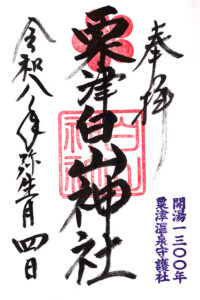 奉拝
粟津白山神社
令和八年弥生月四日
開湯一三〇〇年
粟津温泉守護社